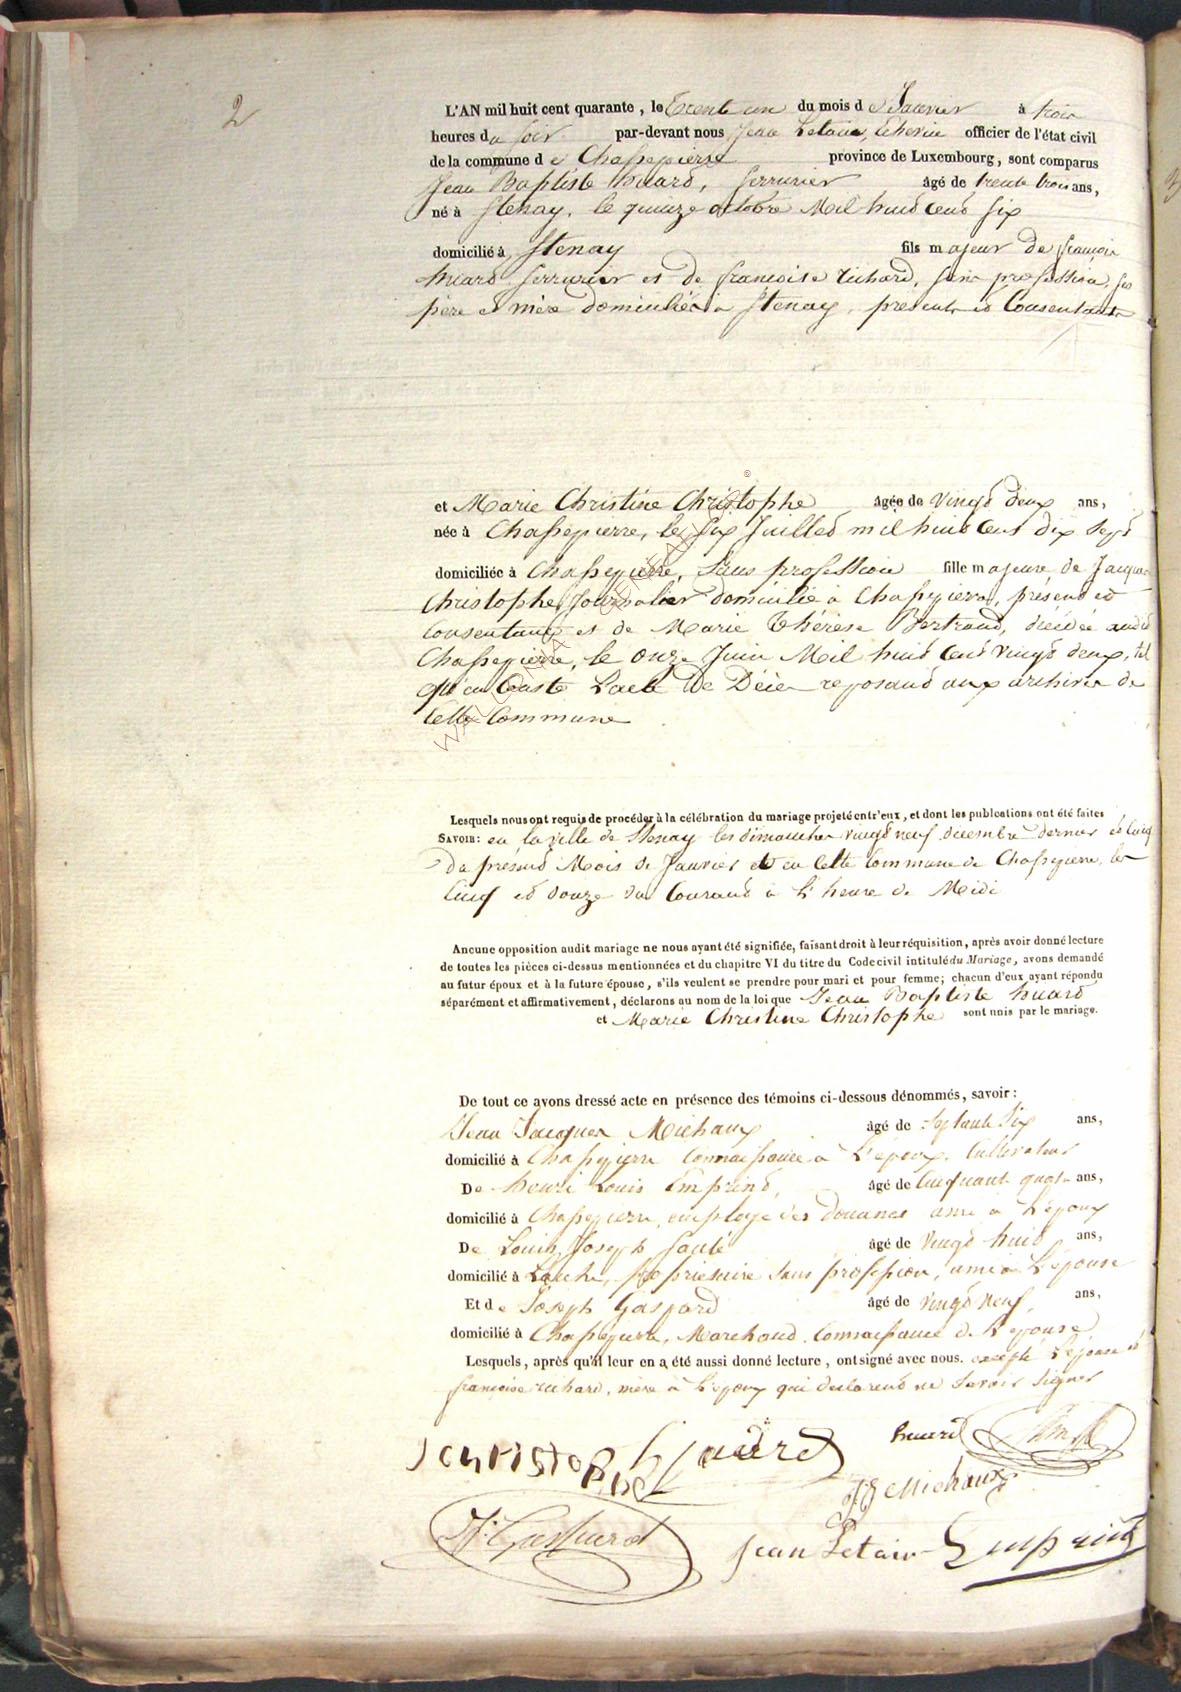 2
L'AN mil huit cent quarante, le trente un du mois de Janvier à trois
heures du soir par-devant nous Jean Letaie, Echevin officier de l'état civil
de la commune de Chassepierre province de Luxembourg, sont comparus
Jean Baptiste huard, serrurier âgé de trente trois ans,
né à Stenay, le quinze octobre Mil huit cent six
domicilié à Stenay fils majeur de françois
huard serrurier et de francoise richard, sans profession, ses
père et mère domiciliés à Stenay, present et Consentants
et Marie Christine Christophe âgée de vingt deux ans,
née à Chassepierre, le six Juillet mil huit cent dix sept
domiciliée à Chassepierre, sans profession fille majeure de Jacques
Christophe, Journalier domicilié à Chassepierre, présent et
Consentant et de Marie Thérèse Bertrand, décédée audit
Chassepierre, le onze Juin Mil huit cent vingt deux, tel
qu'en Conste L'acte de Décès reposant aux archives de
Cette Commune
Lesquels nous ont requis de procéder à la célébration du mariage projeté entr'eux, et dont les publications ont été faites
SAVOIR: en la ville de Stenay les dimanches vingt neuf decembre dernier et Cinq
du present Mois de Janvier et en Cette Commune de Chassepierre, les
Cinq et douze du Courant à L'heure de Midi
Ancune opposition audit mariage ne nous ayant été signifiée, faisant droit à leur réquisition, après avoir donné lecture
de toutes les pièces ci-dessus mentionnées et du chapitre VI du titre du Code civil intitulé du Mariage, avons demandé
au futur époux et à la future épouse, s'ils veulent se prendre pour mari et pour femme; chacun d'eux ayant répondu
séparément et affirmativement, déclarons au nom de la loi que Jean Baptiste huard
et Marie Christine Christophe sont unis par le mariage.
De tout ce avons dressé acte en présence des témoins ci-dessous dénommés, savoir:
Jean Jacques Michaux âgé de septante six ans,
domicilié à Chassepierre Connaissance à L'époux, Cultivateur
De henri Louis Emprind, âgé de Cinquante quatre ans,
domicilié à Chassepierre, employé des douanes ami à L'époux
De Louis Joseph âgé de vingt huit ans,
domicilié à propriétaire sans profession, ami à L'épouse
Et de Joseph Gaspard âgé de vingt neuf, ans,
domicilié à Chassepierre, Marchand Connaissance de L'epouse
Lesquels, après qu'il leur en a été aussi donné lecture, ont signé avec nous. excepté L'épouse et
françoise richard, mère à L'epoux qui declarent ne savoir signer
J christophe huard
JJ Michaux
J. Gaspard Jean Letaie Emprind